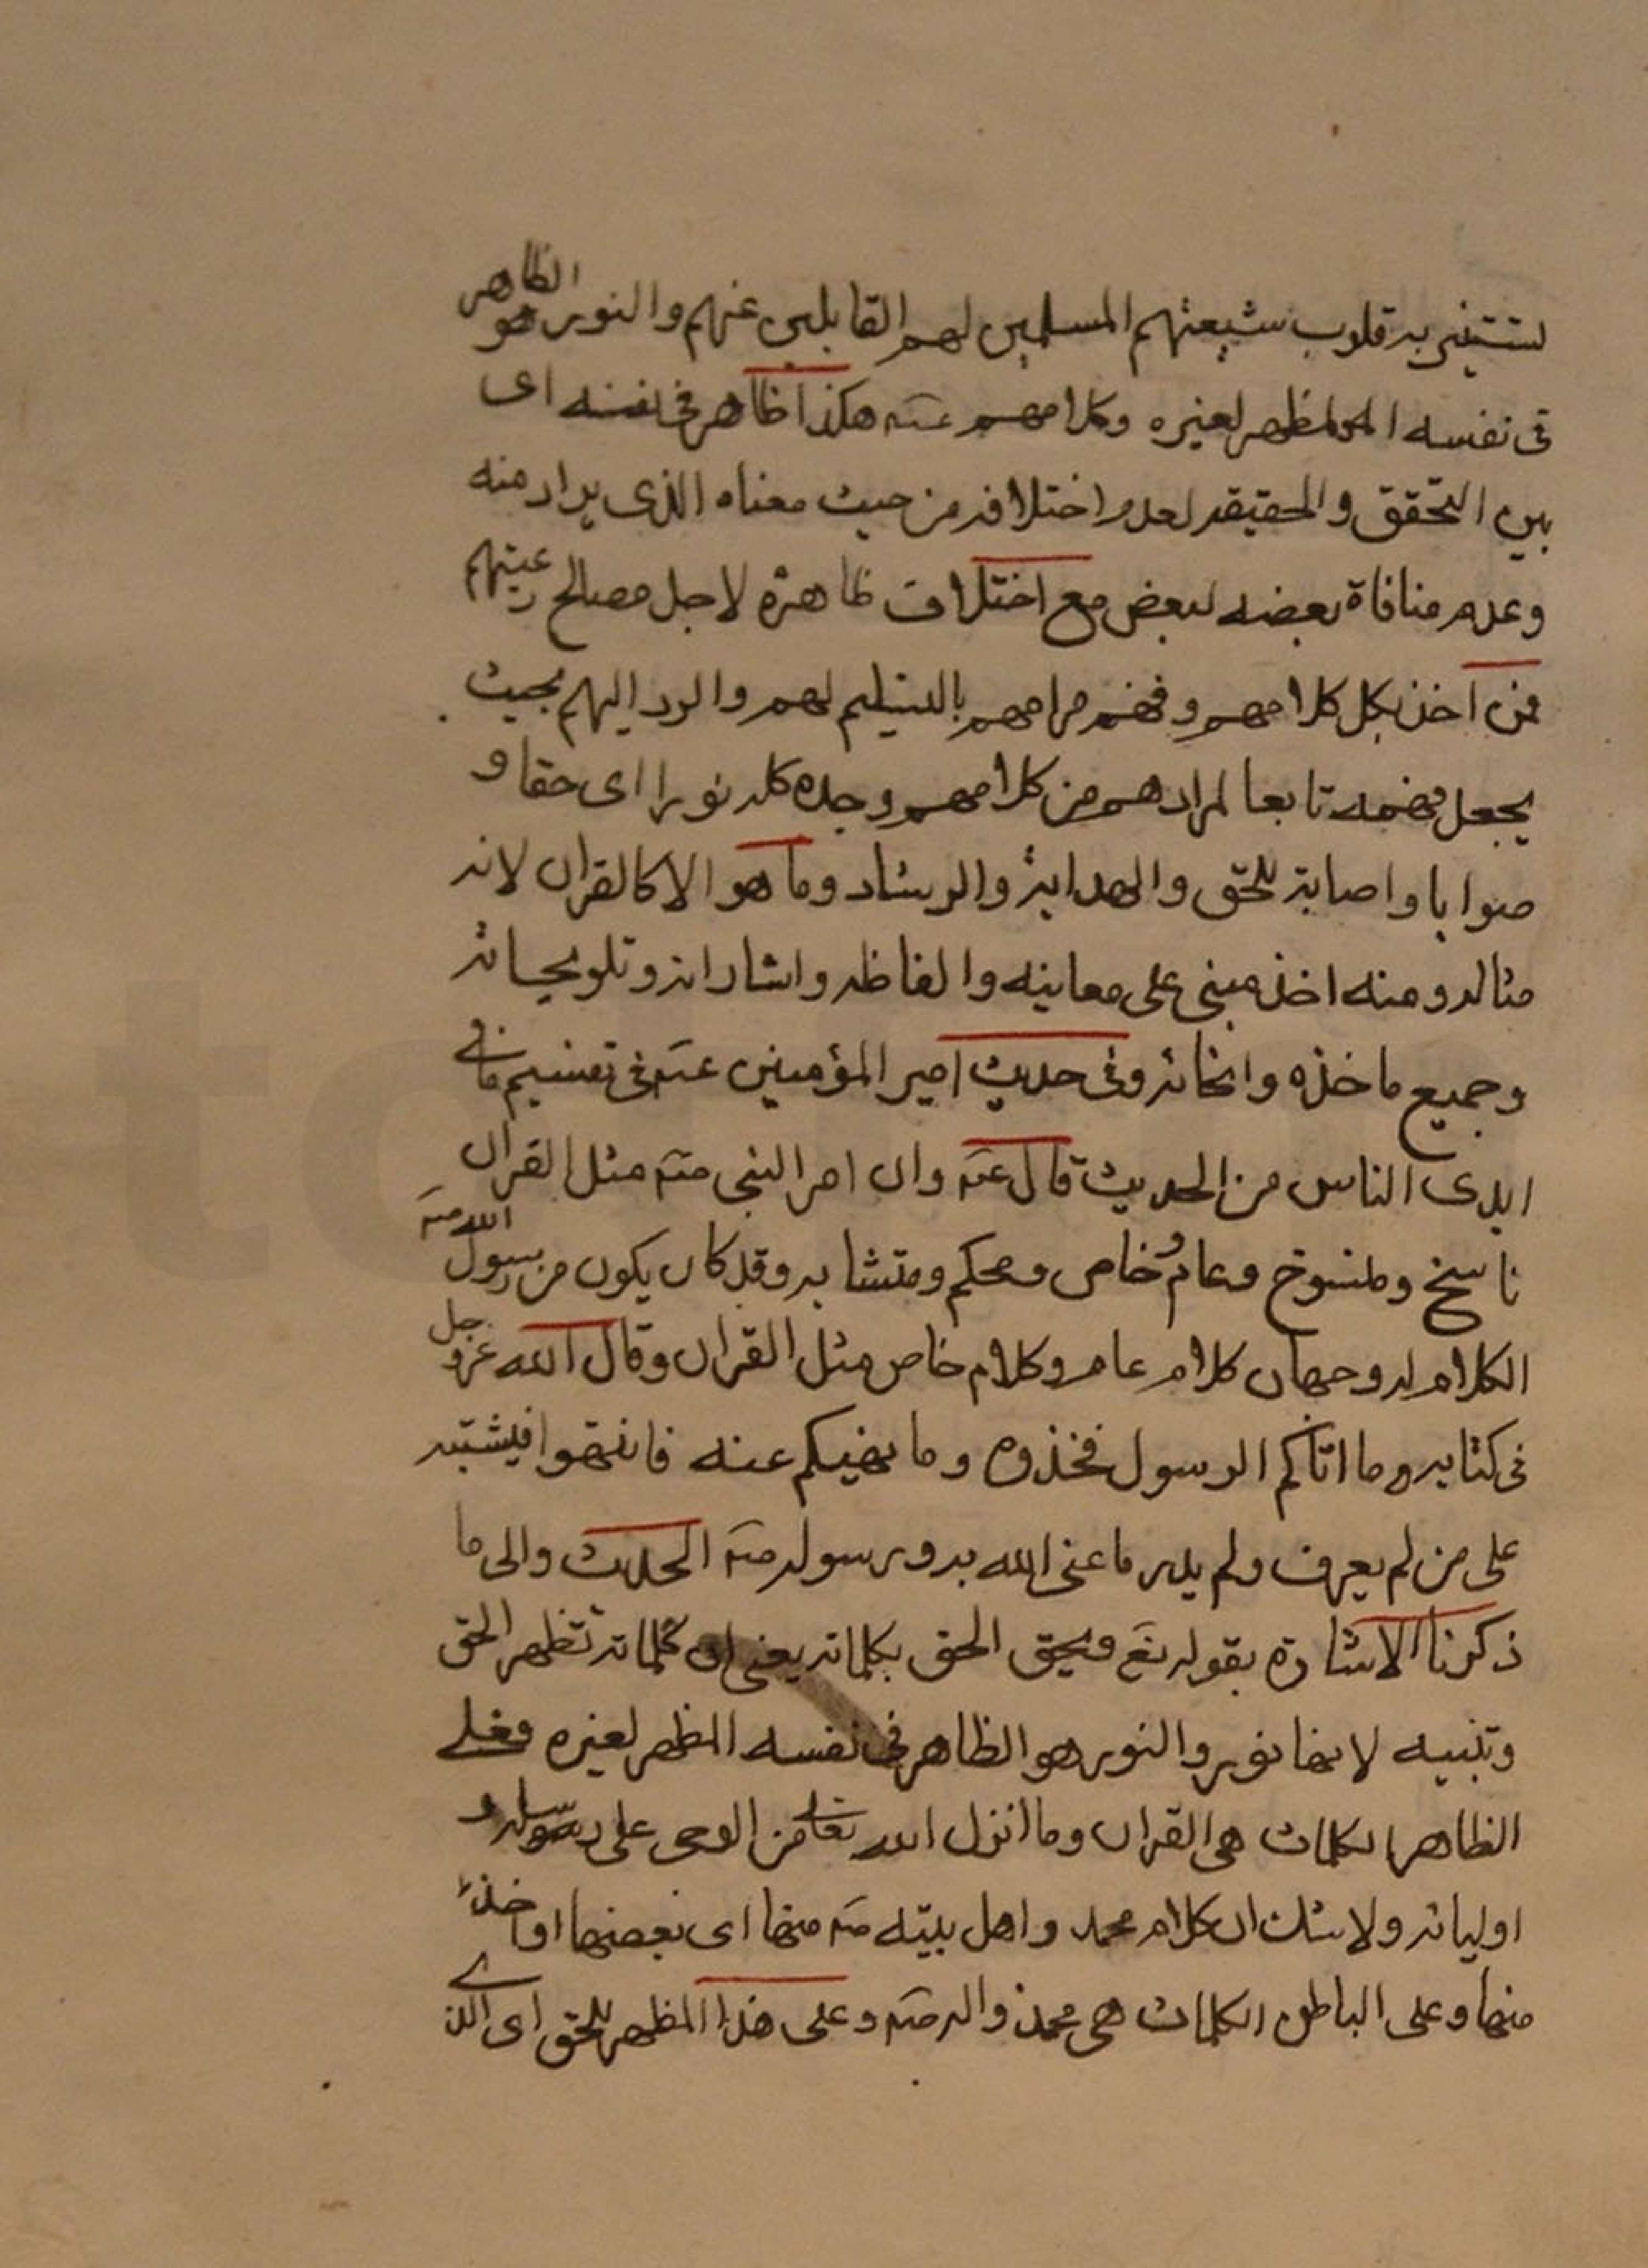 لتستنير به قلوب شيعتهم المسلمين لهم القابلين عنهم والنور هو الظاهر
فى نفسه المظهر لغيره وكلامهم عـ هكذا ظاهر فى نفسه اى
بين التحقق والحقيقه لعدم اختلافه من حيث معناه الذى يراد منه
وعدم منافاة بعضه لبعض مع اختلاف ظاهره لاجل مصالح رعيتهم
فمن اخذ بكل كلامهم وفهم مرامهم بالتسليم لهم والرد اليهم بحيث
يجعل فهمه تابعا لمرادهم من كلامهم وجده كله نورا اى حقا و
صوابا واصابة للحق والهداية والرشاد وما هو الا كالقران لانه
مثاله ومنه اخذ مبنى على معانيه والفاظه واشاراته وتلويحاته
وجميع ماخذه وانحائه وفى حديث امير المؤمنين عـ فى تقسيم ما فى
ايدى الناس من الحديث قال عـ وان امر النبى صـ مثل القران
ناسخ ومنسوخ وعام وخاص ومحكم ومتشابه وقد كان يكون من رسول الله صـ
الكلام له وجهان كلام عام وكلام خاص مثل القران وقال الله عز وجل
فى كتابه وما اتاكم الرسول فخذوه وما نهيكم عنه فانتهوا فيشتبه
على من لم يعرف ولم يدر ما عنى الله به ورسوله صـ الحديث والى ما
ذكرنا الاشارة بقوله تع ويحق الحق بكلماته يعنى ان كلماته تظهر الحق
وتبينه لانها نور والنور هو الظاهر فى نفسه المظهر لغيره فعلى
الظاهر الكلمات هى القران وما انزل الله تعالى من الوحى على رسوله و
اوليائه ولا شك ان كلام محمد واهل بيته صـ منها اى بعضها او اخذ
منها وعلى الباطن الكلمات هى محمد واله صـ وعلى هذا المظهر للحق اى الذى